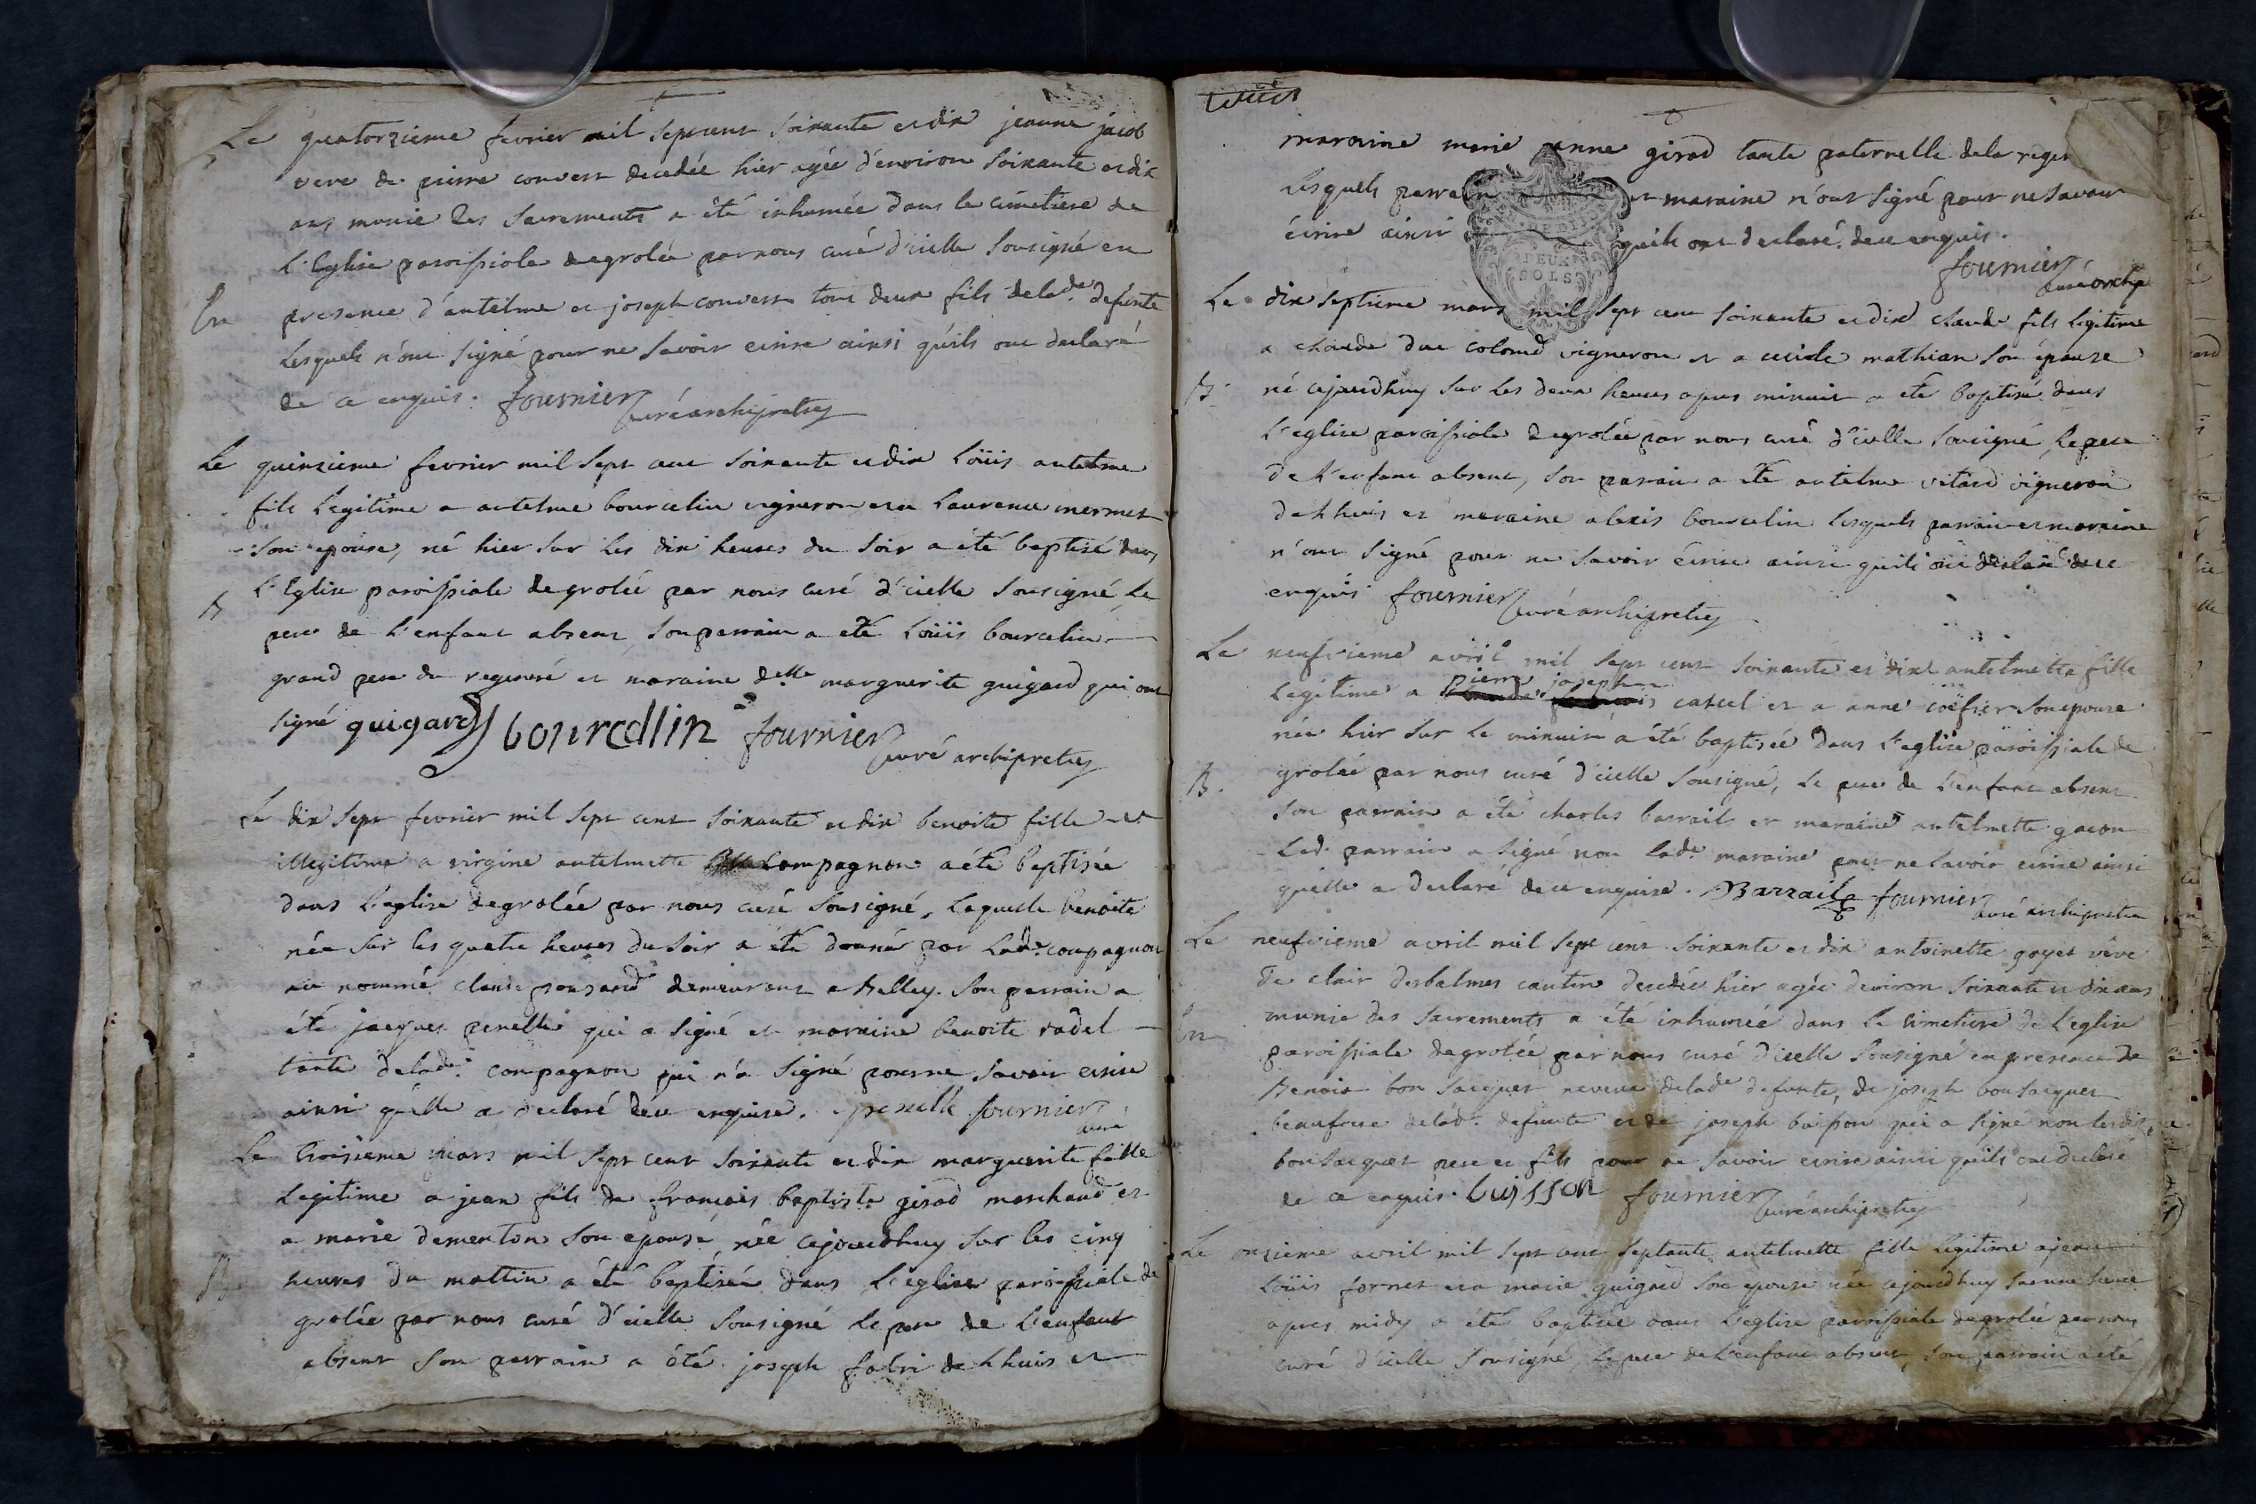 Le quatorzieme fevrier mil sept cent soixante et dix jeanne jacob
veve de pierre convert decedée hier agée d'environ soixante et dix
ans munie des sacrements a été inhumée dans le cimetiere de
L'Eglise paroissiale de grolée par nous curé d'icelle sousigné en
En presence d'antelme et joseph convert tous deux fils de lade. defunte
Lesquels n'ont signé pour ne savoir ecrire ainsi qu'ils ont declaré
de ce enquis. fournier curé archipretre
Le quinzieme fevrier mil sept cent soixante et dix Loüis antelme
fils Legitime a antelme bourcelin vigneron et a Laurence mermet
son epouse, né hier sur les dix heures du soir a été baptisé dans
L'Eglise paroissiale de grolée par nous curé d'icelle sousigné, Le
B pere de L'enfant absent, son parrain a été Loüis bourcelin
grand pere du regeneré et maraine delle marguerite guigard qui ont
signé guigard bourcellin fournier curé archipretre
Le dix sept fevrier mil sept cent soixante et dix benoite fille
illegitime a virgine antelmette compagnon a été baptisée
dans L'eglise de grolée par nous curé sousigné, Laquelle benoite
née sur les quatre heures du soir a été donné par lade. compagnon
au nommé claude demeurant a Belley. Son parrain a
été jacques penelle qui a signé et maraine benoite radel
tante de lade. compagnon qui n'a signé pour ne savoir ecrire
ainsi qu'elle a declaré de ce enquise. penelle fournier curé
Le troisieme mars mil sept cent soixante et dix marguerite fille
Legitime a jean fils de françois baptiste girod marchand et
a marie dementon son epouse, née cejourdhuy sur les cinq
B heures du mattin a été baptisée dans L'eglise paroissiale de
grolée par nous curé d'icelle sousigné le pere de L'enfant
absent son parrain a été joseph fabri de Lhuis et
maraine marie anne girod tante paternelle de la reger
Lesquels parrain et maraine n'ont signé pour ne savoir
écrire ainsi qu'ils ont declaré de ce enquis.
DEUX
SOLS
fournier curé archip
Le dix septieme mars mil sept cent soixante et dix claude fils legitime
a claude duc colomb vigneron et a cecile mathian son épouze
B. né cejourdhuy sur les deux heures apres minuit a été baptisé dans
L'eglise paroissiale de grolée par nous curé d'icelle sousigné, le pere
de L'enfant absent, son parrain a été antelme vitard vigneron
de Lhuis et maraine alexis bourcelin lesquels parrain et maraine
n'ont signé pour ne savoir écrire ainsi quils ont declaré de ce
enquis fournier curé archipretre
Le neufvieme avril mil sept cent soixante et dix antelmette fille
Legitime a pierre joseph cascel et a anne coëfier son epouse
née hier sur le minuit a été baptisée dans L'eglise paroissiale de
B. grolée par nous curé d'icelle sousigné, le pere de L'enfant absent
son parrain a été charles barrail et maraine antelmette gacon
Led. parrain a signé non lade. maraine pour ne savoir ecrire ainsi
qu'elle a declaré de ce enquise. Barrail fournier curé archipretre
Le neufvieme avril mil sept cent soixante et dix antoinette goyet veve
de clair desbalmes cantin decedée hier agée d'environ soixante et dix ans
En munie des sacrements a été inhumée dans le cimetiere de L'eglise
paroissiale de grolée par nous curé d'icelle sousigné en presence de
Benoit bon jacques neveu de lade defunte, de joseph bon jacques
beaufrere de lad. defunte et de joseph buisson qui a signé non lesdits
bon jacques pere et fils pour ne savoir ecrire ainsi qu'ils ont declaré
de ce enquis. buisson fournier curé archipretre
Le onzieme avril mil sept cent septante antelmette fille legitime a jean
Loüis fornet et a marie guigard son epouse née cejourdhuy sur une heure
apres midy a été baptisée dans L'eglise paroissiale de grolée par nous
curé d'icelle sousigné le pere de L'enfant absent, son parrain a été